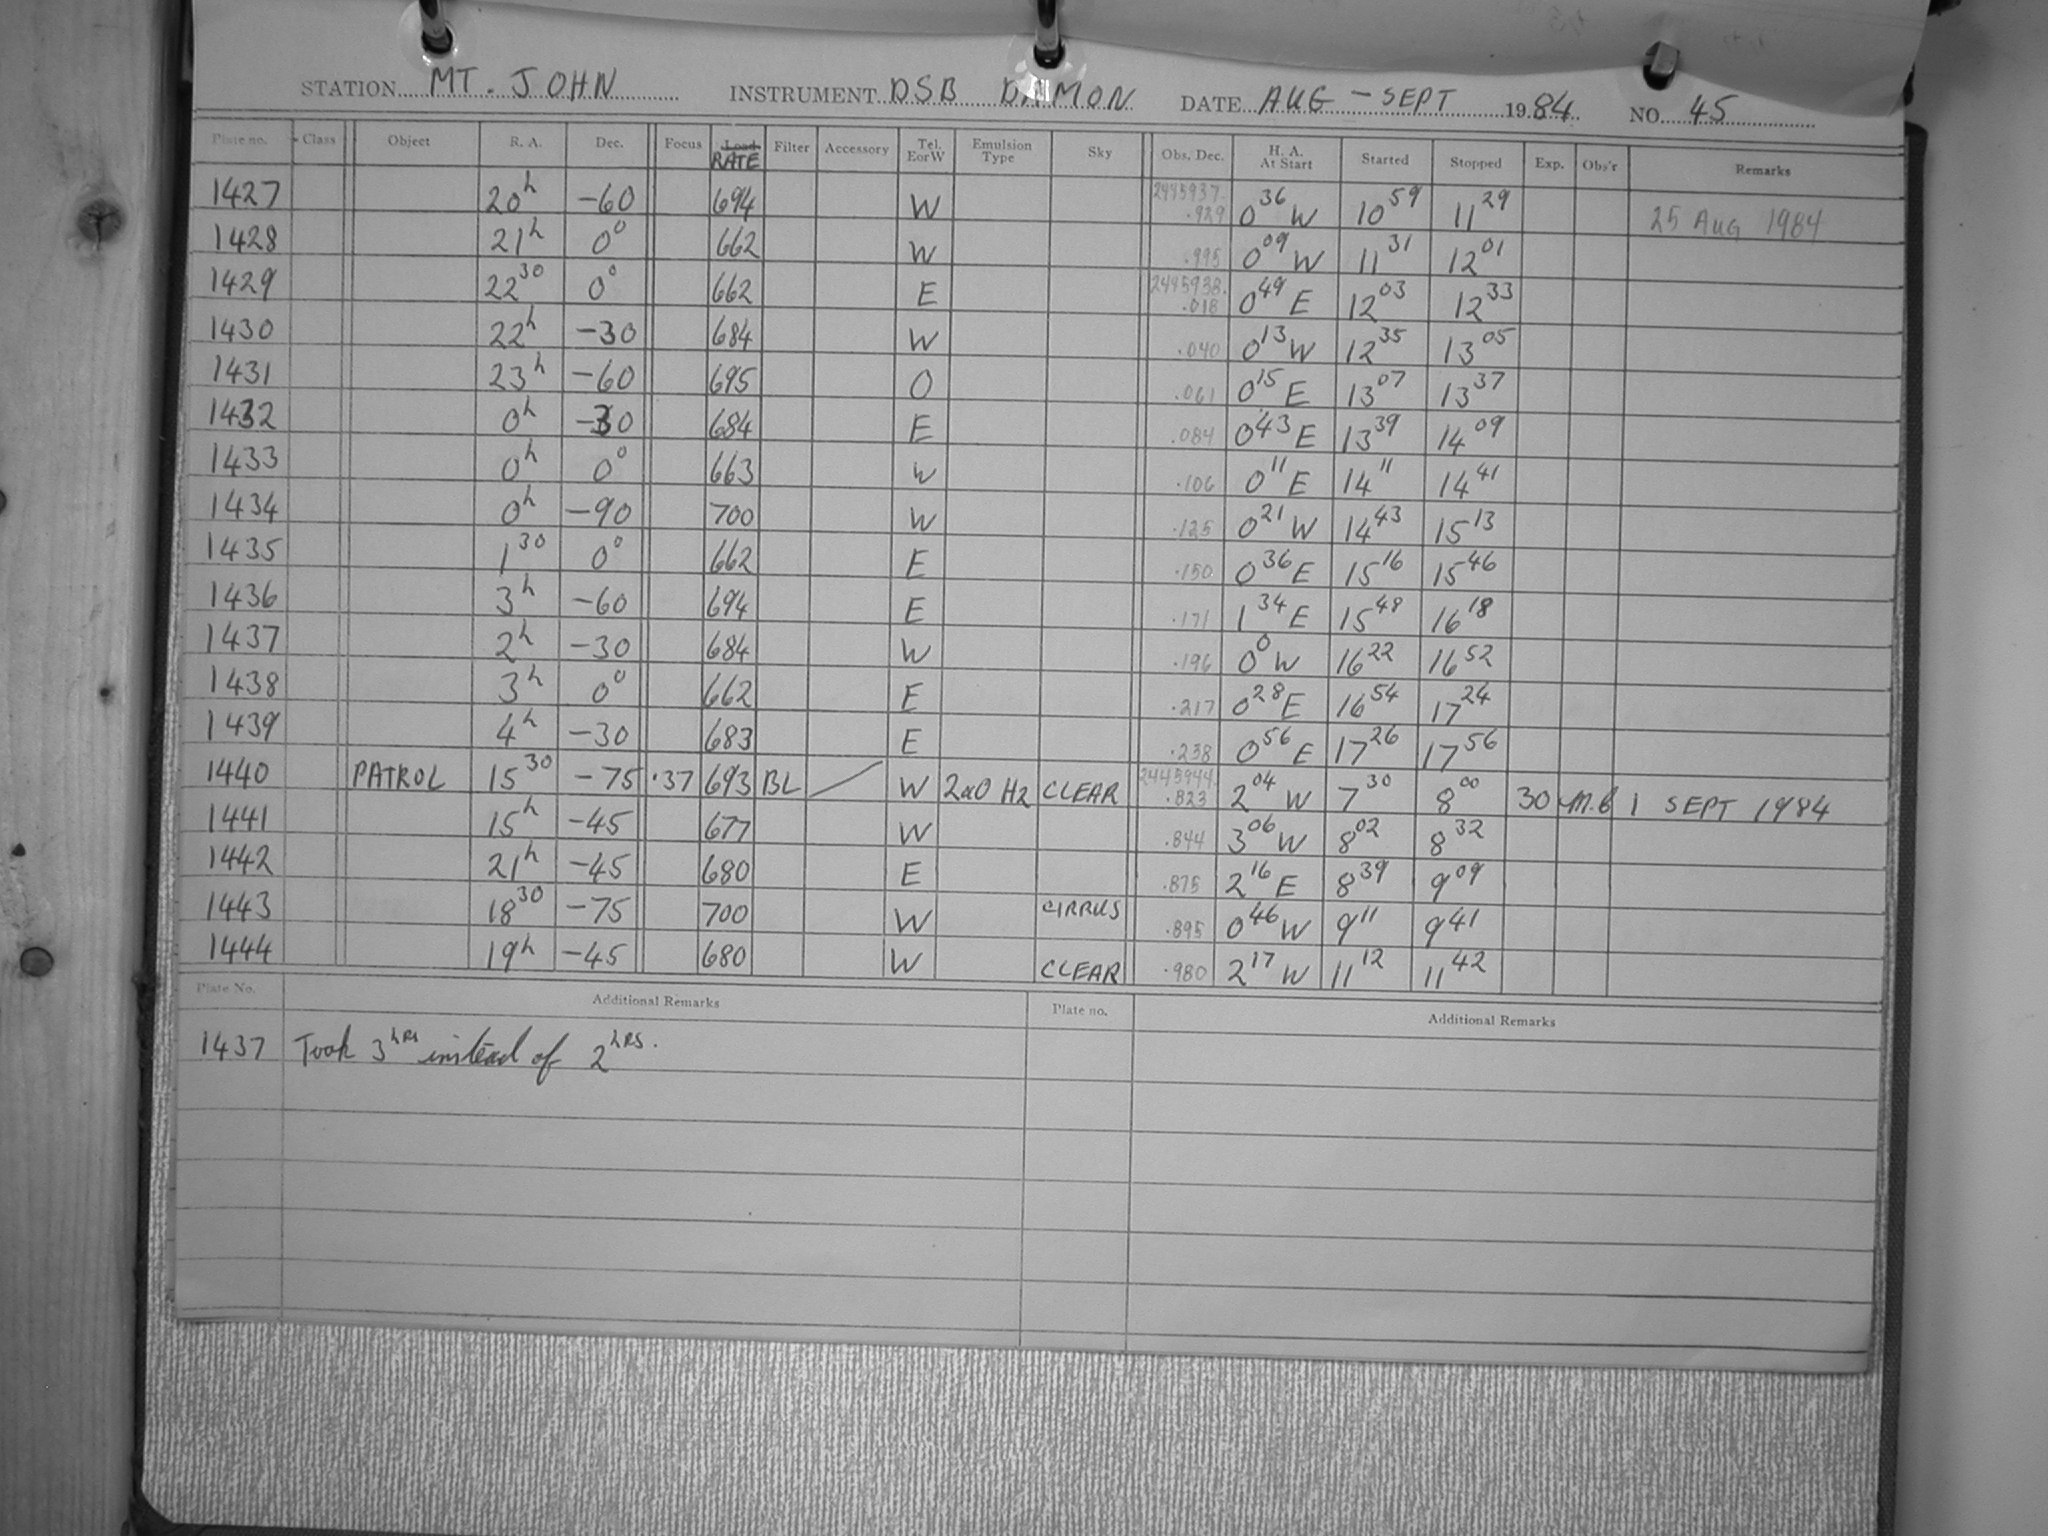 STATION MT. JOHN INSTRUMENT DSB DAMON DATE AUG - SEPT 1984 NO. 45
Plate no. Class Object R. A. Dec. Focus Load RATE Filter Accessory Tel. E or W Emulsion Type Sky Obs. Dec. H. A. At Start Started Stopped Exp. Obs'r Remarks
1427 20h -60 694 W 2445937. .929 0 36 W 10 59 11 29 25 Aug 1984
1428 21h 0° 662 W .995 0 09 W 11 31 12 01
1429 22 30 0° 662 E 2445938. .018 0 49 E 12 03 12 33
1430 22h -30 684 W .040 0 13 W 12 35 13 05
1431 23h -60 695 O .061 0 15 E 13 07 13 37
1432 0h -30 684 E .084 0 43 E 13 39 14 09
1433 0h 0° 663 W .106 0 11 E 14 11 14 41
1434 0h -90 700 W .125 0 21 W 14 43 15 13
1435 1 30 0° 662 E .150 0 36 E 15 16 15 46
1436 3h -60 694 E .171 1 34 E 15 48 16 18
1437 2h -30 684 W .196 0 0 W 16 22 16 52
1438 3h 0° 662 E .217 0 28 E 16 54 17 24
1439 4h -30 683 E .238 0 56 E 17 26 17 56
1440 PATROL 15 30 -75 .37 693 BL W 2aO H2 CLEAR 2445944. .823 2 04 W 7 30 8 00 30 M.C 1 SEPT 1984
1441 15h -45 677 W .844 3 06 W 8 02 8 32
1442 21h -45 680 E .875 2 16 E 8 39 9 09
1443 18 30 -75 700 W CIRRUS .895 0 46 W 9 11 9 41
1444 19h -45 680 W CLEAR .980 2 17 W 11 12 11 42
Plate No. Additional Remarks Plate no. Additional Remarks
1437 Took 3 hRS instead of 2 hRS.